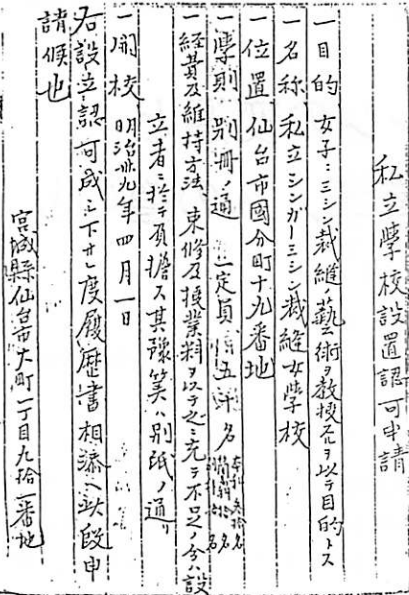 私立學校設置認可申請
一目的 女子ニミシン裁縫藝術ヲ教授スルヲ以テ目的トス
一名称 私立シンガーミシン裁縫女学校
一位置 仙台市國分町十九番地
一學則 別冊ノ通 一定員 五十名
一経費及維持方法 束修及授業料ヲ以テ之ニ充テ不足ノ分ハ設
立者ニ於テ負擔ス其豫算ハ別紙ノ通リ
一開校 明治卅九年四月一日
右設立認可成シ下サレ度履歴書相添ヘ此段申
請候也
宮城縣仙台市大町一丁目九拾一番地